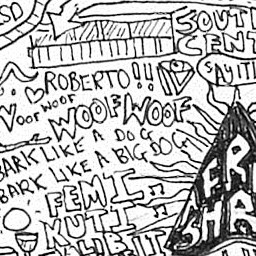 SOUTH
CENT
SAY IT!
ROBERTO!!
WOOF WOOF
WOOF WOOF
BARK LIKE A DOG
BARK LIKE A BIG DOG
FEMI
KUTI
ER
SHR